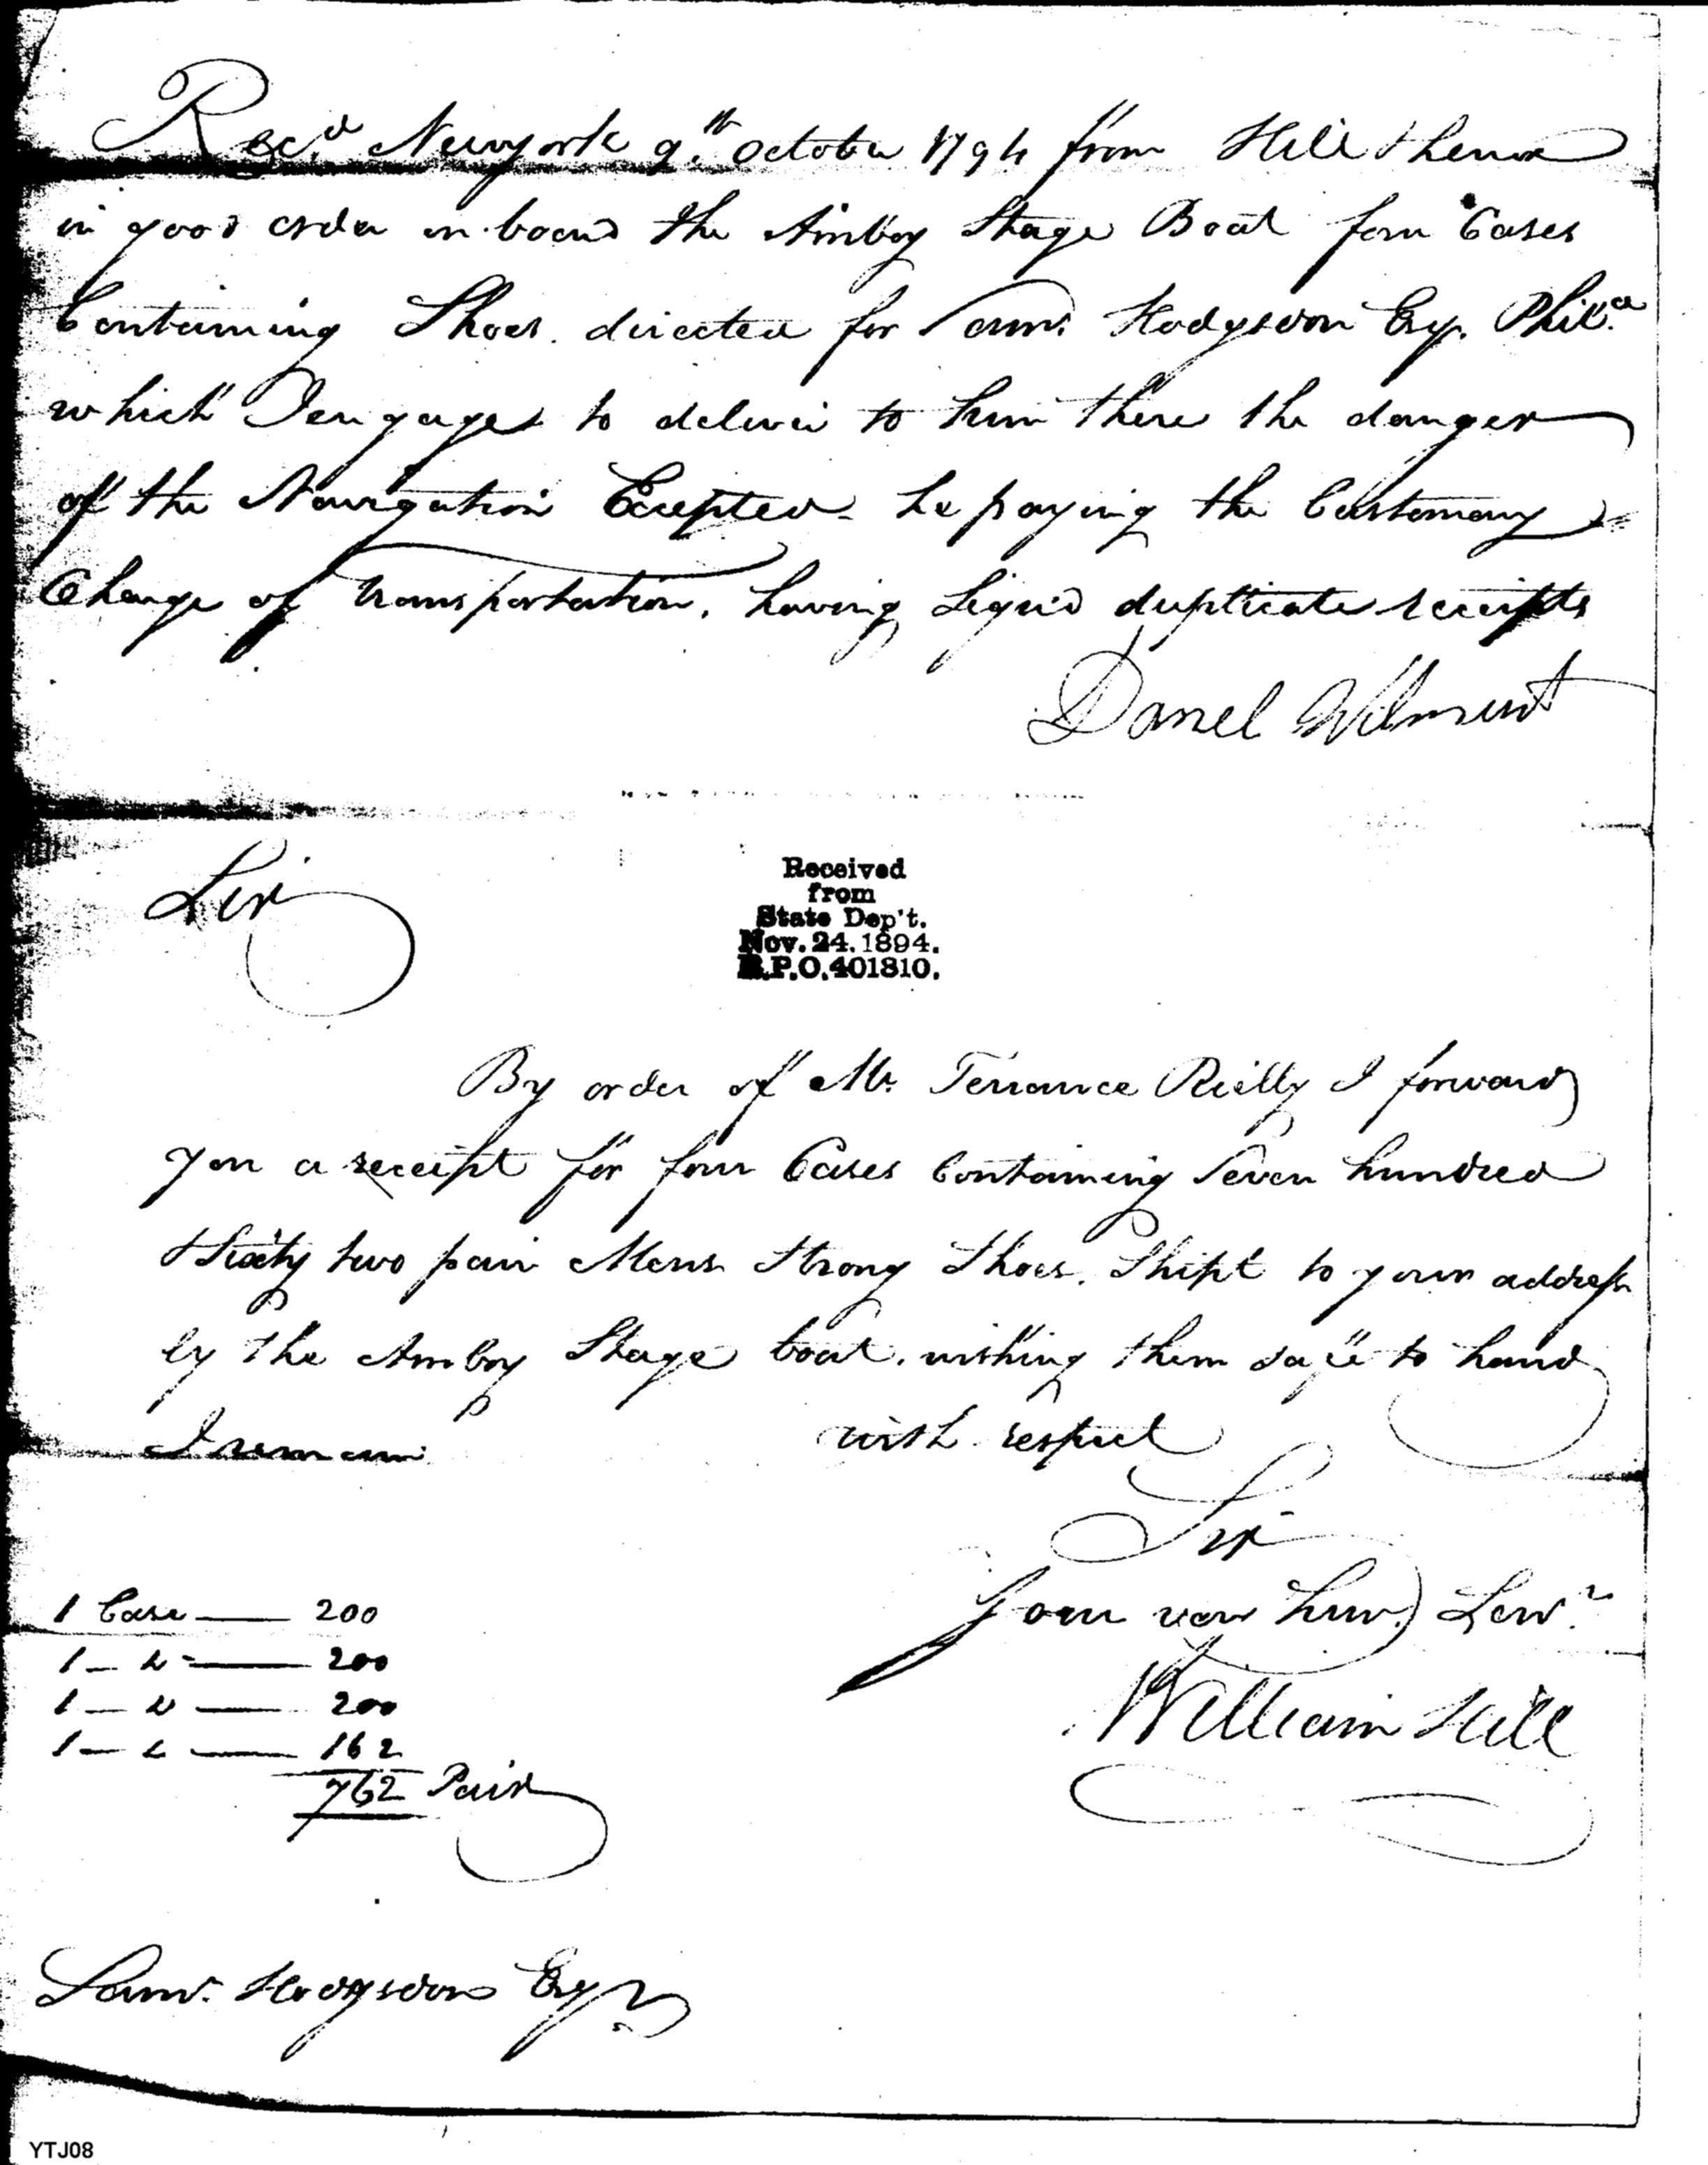 Rec.d Newyork 9.th October 1794 from Hill &
in good order on board the Amboy Stage Boat four Cases
Containing Shoes. directed for Saml. Hodgsdon Esq. Phil.a
which I engage to deliver to him there the danger
of the Navigation Excepted - he paying the Customary
Charge of transportation, having signed duplicate receipts
Daniel Wilmurt
Sir
Received
from
State Dep't.
Nov. 24. 1894.
R.P.O. 401810.
By order of Mr. Terrance Rielly I forward
you a receipt for four Cases Containing Seven hundred
& Sixty two pair Mens Strong Shoes. Shipt to your address
by the Amboy Stage boat. wishing them safe to hand
I remain with respect
Sir
Your very Hum. Serv.t
William Hill
1 Case — 200
1 — " — 200
1 — " — 200
1 — " — 162
762 Pair
Saml. Hodgsdon Esqr.
YTJ08